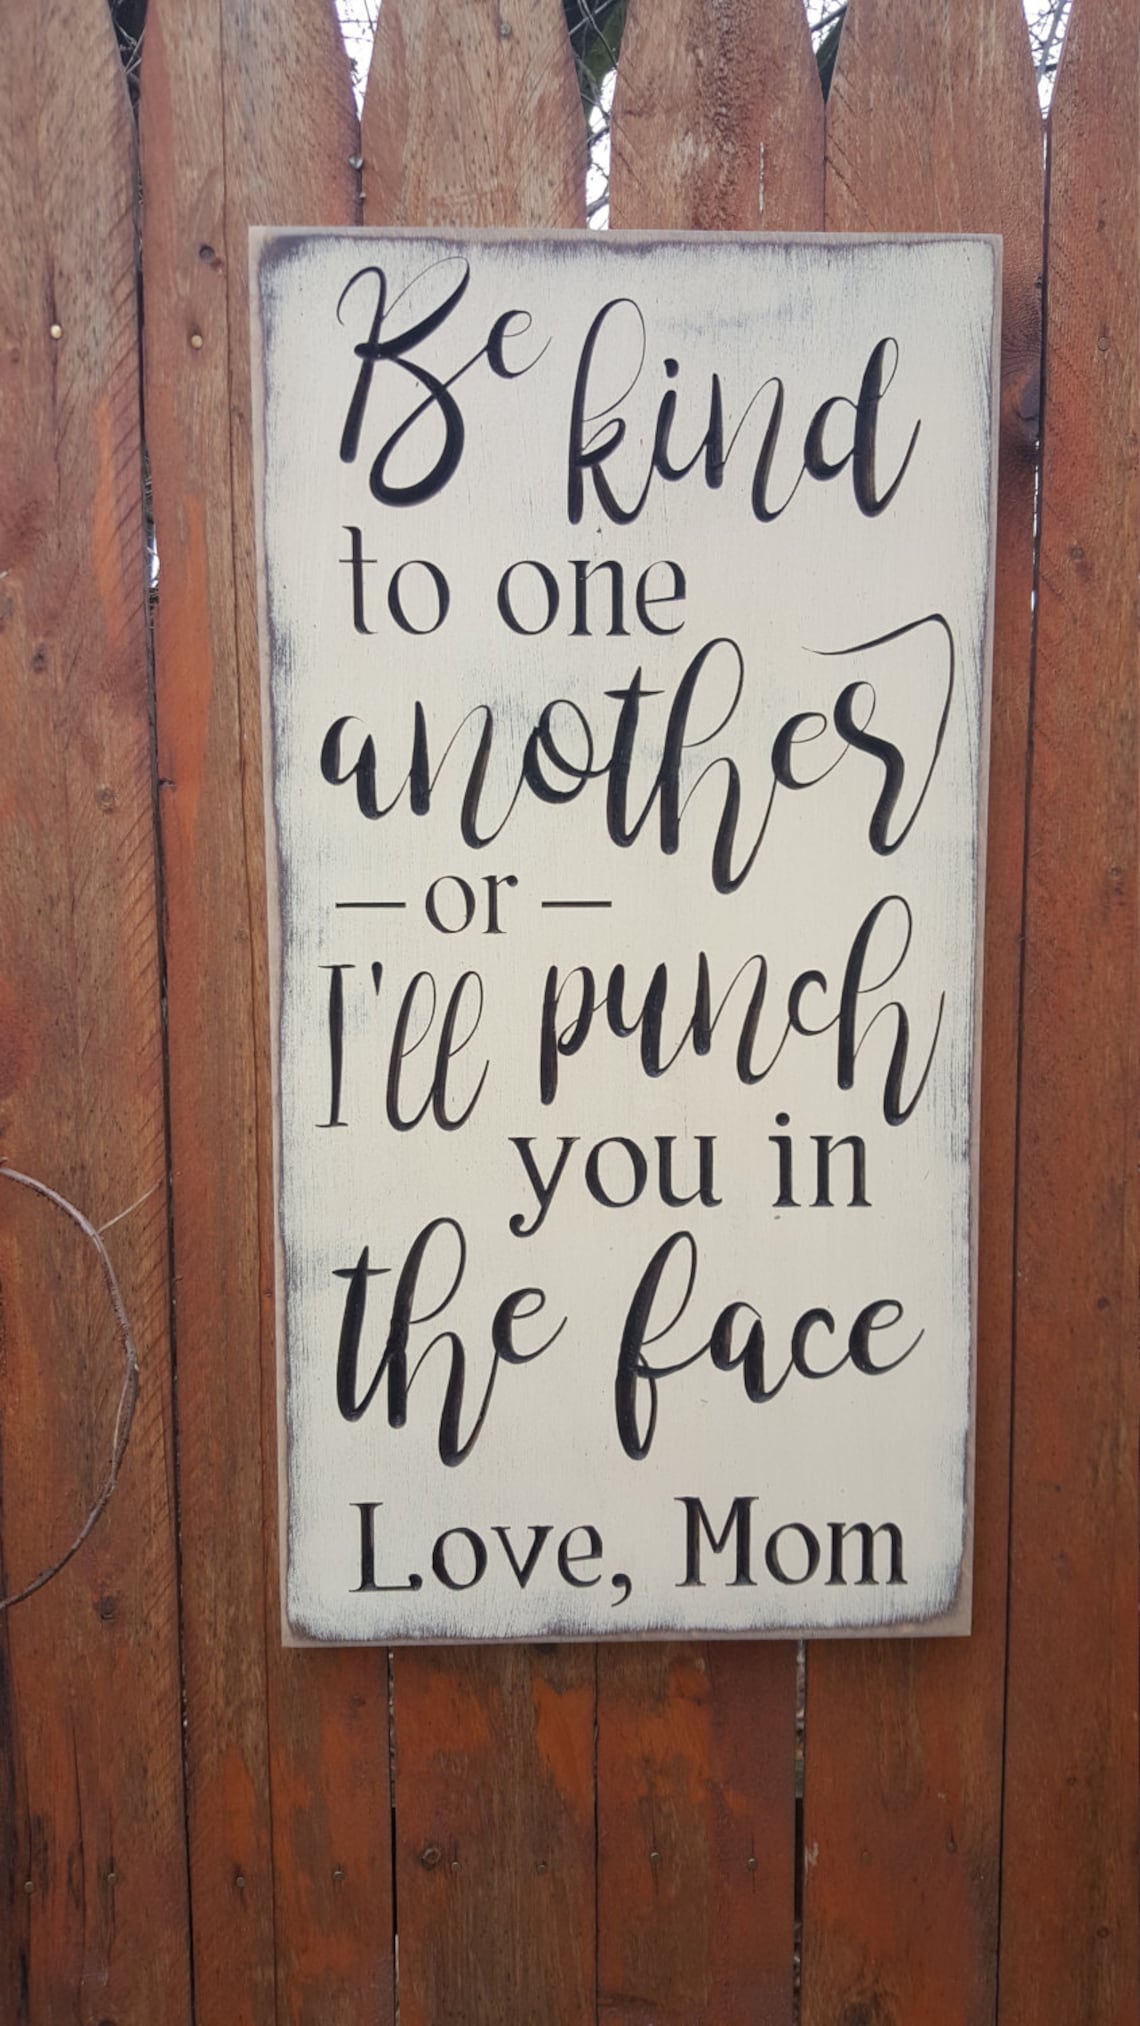 Be kind
to one
another
— or —
I'll punch
you in
the face
Love, Mom